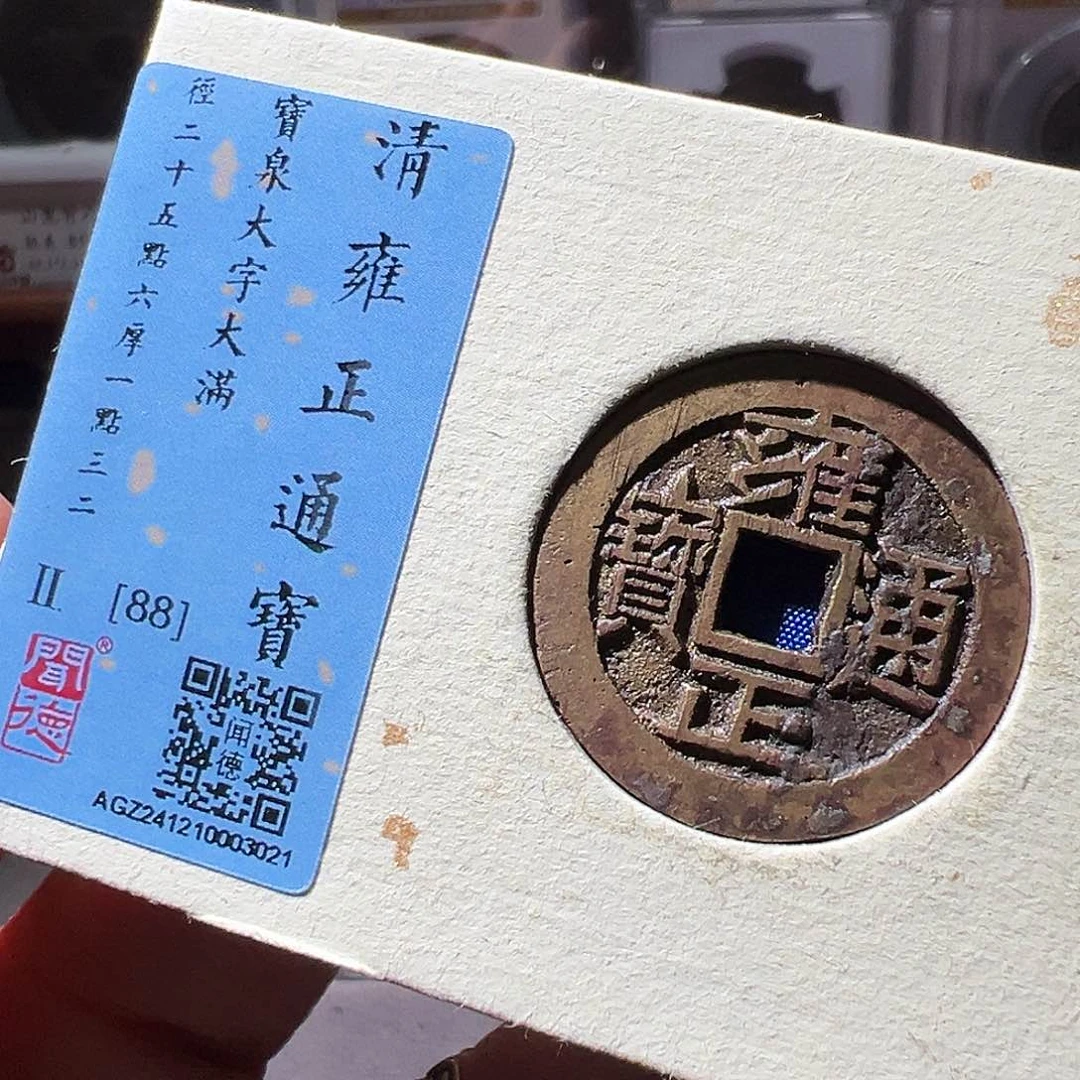 清雍正通寶
寶泉大字大滿
徑二十五點六厚一點三二
II
[88]
聞德®
闻德
AGZ241210003021
雍正通寶